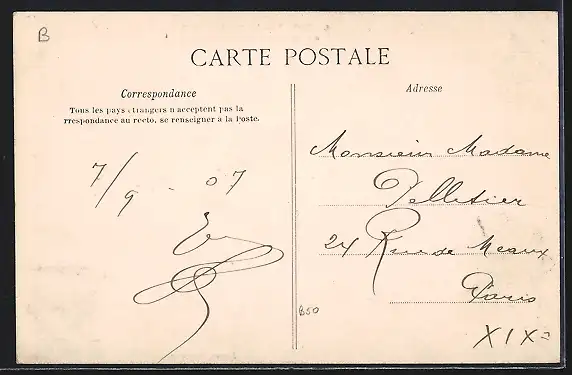 B
CARTE POSTALE
Correspondance
Tous les pays étrangers n'acceptent pas la
rrespondance au recto, se renseigner à la Poste.
7/9 - 07
Adresse
Monsieur Madame
Pelletier
24 Rue de Meaux
Paris
XIXe
B50